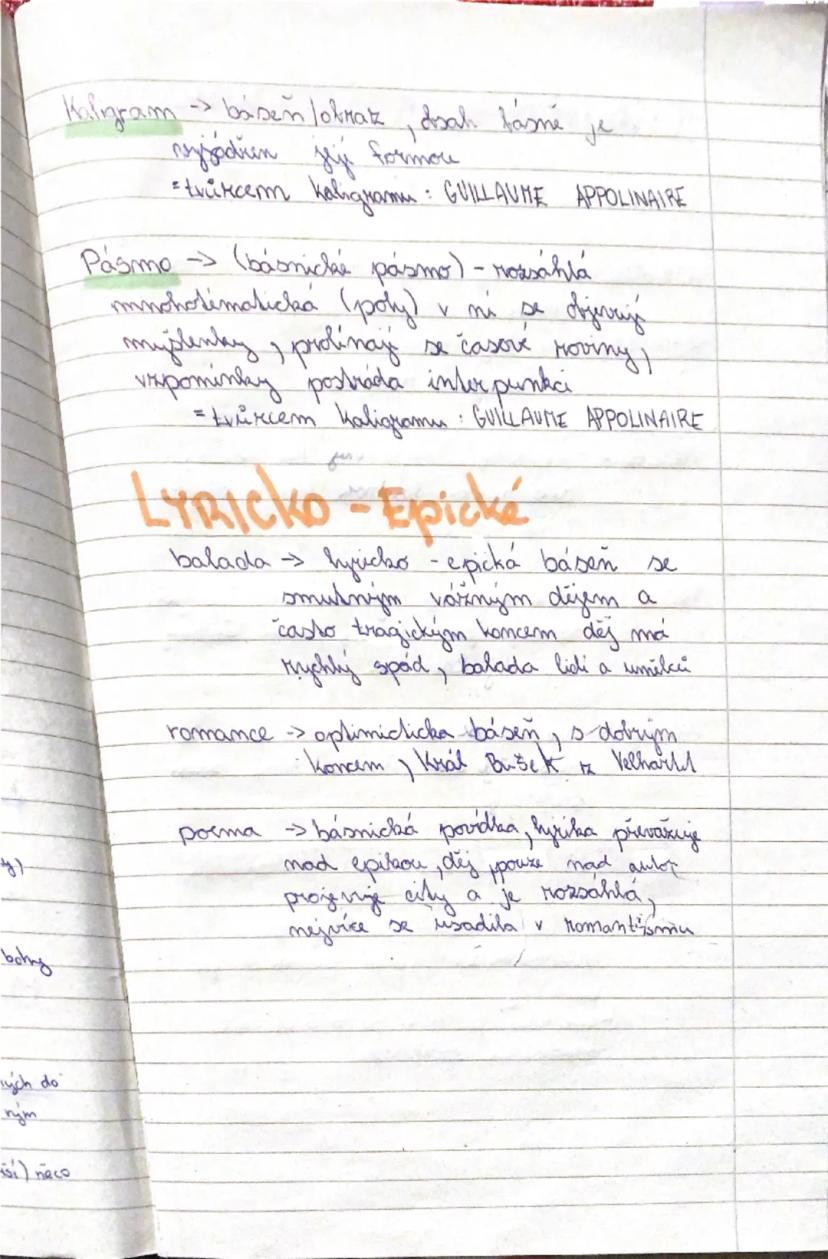 Kaligram -> báseň/obraz, obsah básně je
vyjádřen její formou
=tvůrcem kaligramu: GUILLAUME APPOLINAIRE
Pásmo -> (básnické pásmo) - rozsáhlá
mnohotématická (poly) v ní se objevují
myšlenky, prolínají se časové roviny,
vzpomínky postrádá interpunkci
=tvůrcem kaligramu: GUILLAUME APPOLINAIRE
LYRICKO - Epické
balada -> lyricko - epická báseň se
smutným vážným dějem a
často tragickým koncem děj má
rychlý spád, balada lidi a umělců
romance -> optimidicka báseň, s dobrým
koncem, Král Bušek z Velhartil
poema -> básnická povídka, lyrika převažuje
nad epikou, děj pouze nad autor
projevuje city a je rozsáhlá,
nejvíce se usadila v romantismu
bohy
ných do
ným
něco